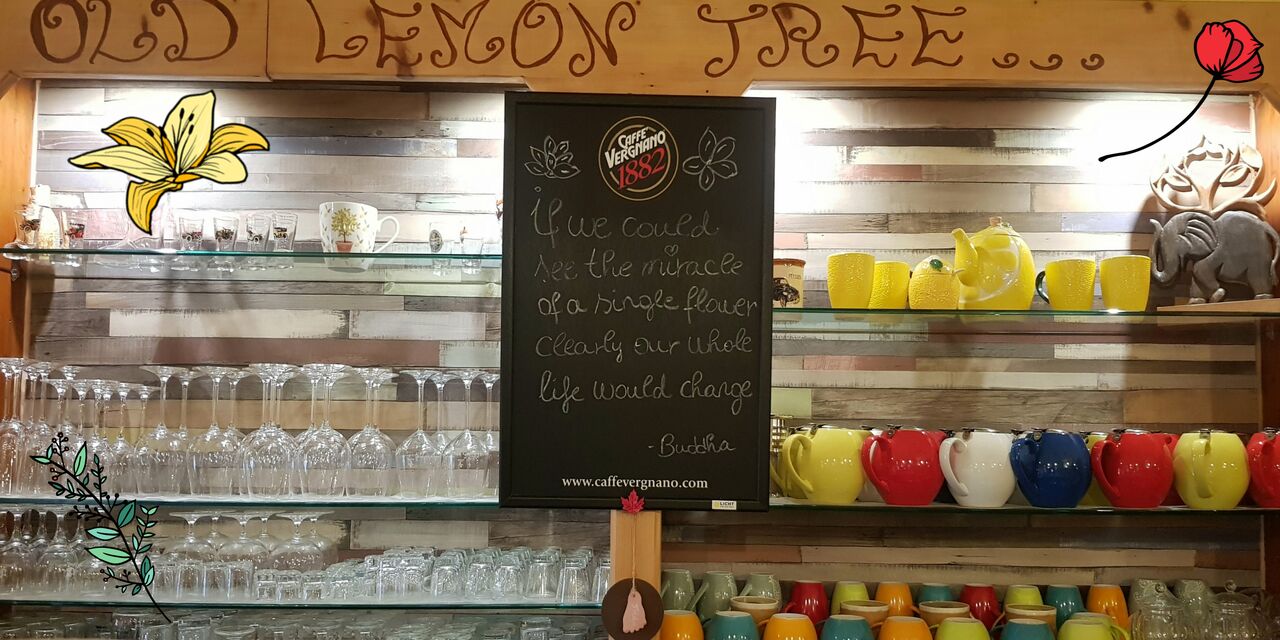 OLD LEMON TREE...
CAFFÈ
VERGNANO
1882
if we could
see the miracle
of a single flower
clearly our whole
life would change
-Buddha
www.caffevergnano.com
LICHT